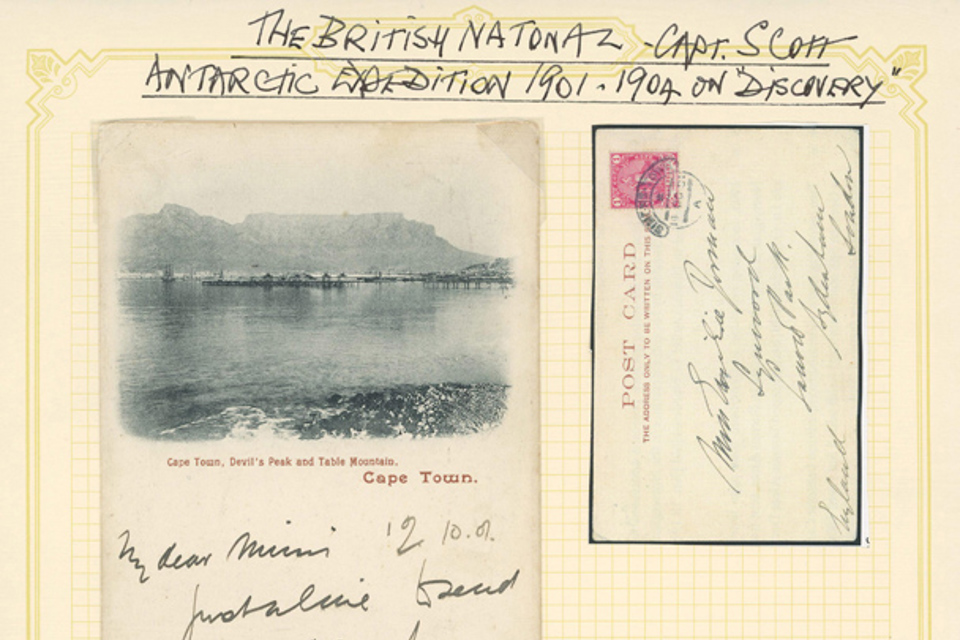 THE BRITISH NATONAL - CAPT. SCOTT
ANTARCTIC EXPEDITION 1901-1904 ON "DISCOVERY"
Cape Town, Devil's Peak and Table Mountain.
Cape Town.
12.10.01.
My dear Mimi
Just a line to send
POST CARD
THE ADDRESS ONLY TO BE WRITTEN ON THIS
Miss
Lynwood
Park.
Sydenham
London
England